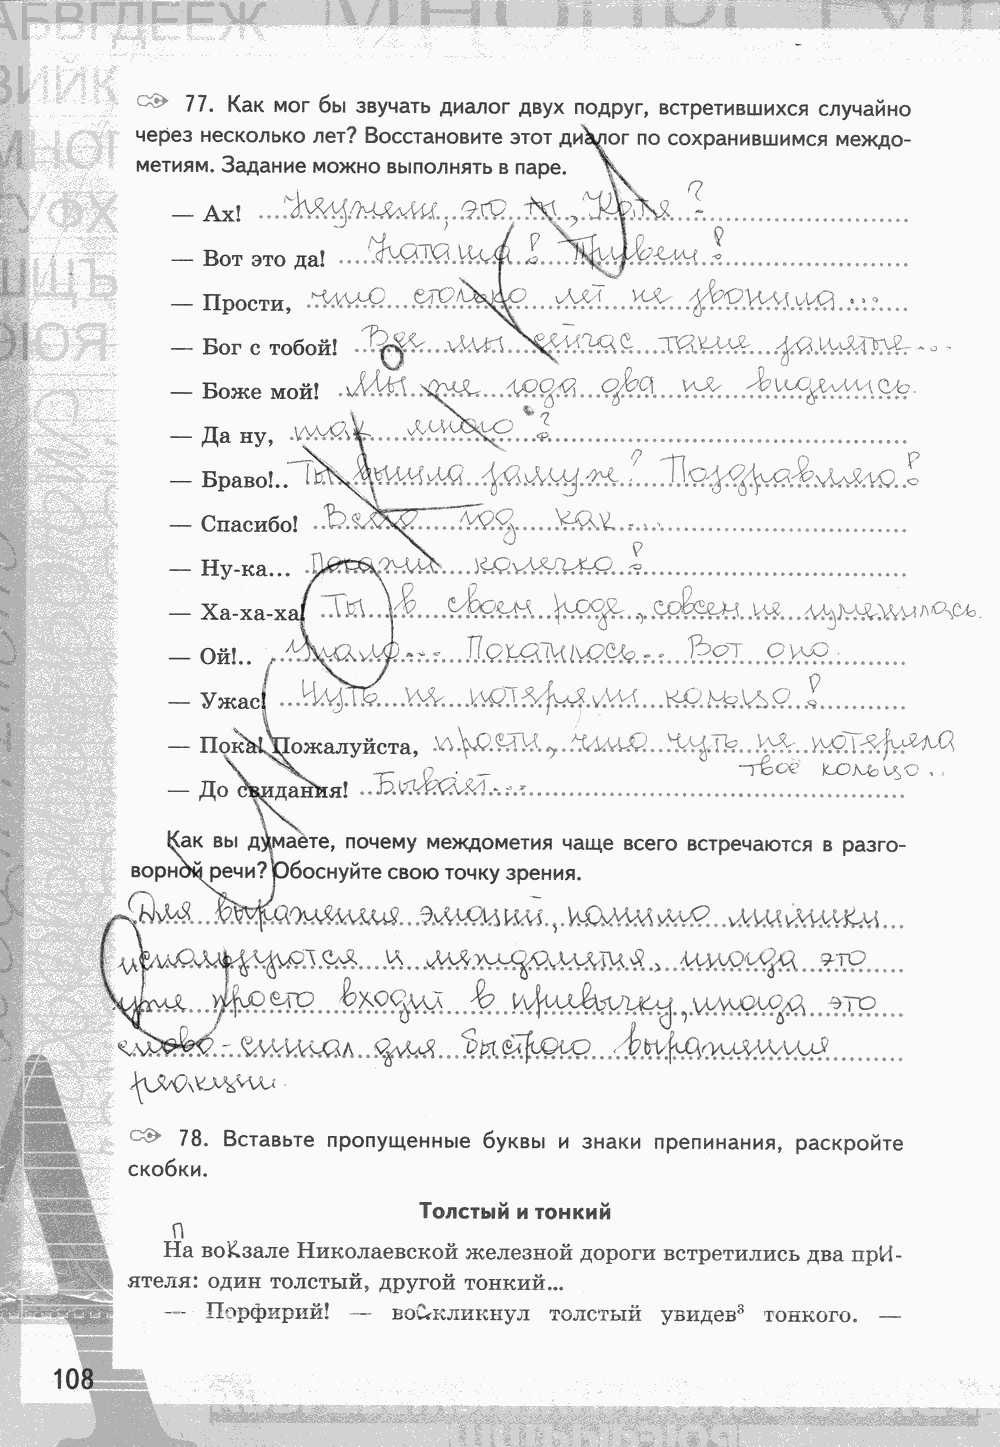 77. Как мог бы звучать диалог двух подруг, встретившихся случайно
через несколько лет? Восстановите этот диалог по сохранившимся междо-
метиям. Задание можно выполнять в паре.
— Ах! Неужели, это ты, Катя?
— Вот это да! Наташа! Привет!
— Прости, что столько лет не звонила...
— Бог с тобой! Все мы сейчас такие занятые...
— Боже мой! Мы же года два не виделись.
— Да ну, так много?
— Браво!.. Ты вышла замуж? Поздравляю!
— Спасибо! Всего год как...
— Ну-ка... Покажи колечко!
— Ха-ха-ха! Ты в своем роде, совсем не изменилась.
— Ой!.. Упало... Покатилось.. Вот оно.
— Ужас! Чуть не потеряли кольцо!
— Пока! Пожалуйста, прости, что чуть не потеряла
твоё кольцо..
— До свидания! Бывает...
Как вы думаете, почему междометия чаще всего встречаются в разго-
ворной речи? Обоснуйте свою точку зрения.
Для выражения эмоций, помимо мимики
используются и междометия, иногда это
уже просто входит в привычку, иногда это
слово-сигнал для быстрого выражения
реакции.
78. Вставьте пропущенные буквы и знаки препинания, раскройте
скобки.
Толстый и тонкий
П
На вокзале Николаевской железной дороги встретились два при-
ятеля: один толстый, другой тонкий...
— Порфирий! — воскликнул толстый увидев³ тонкого. —
108